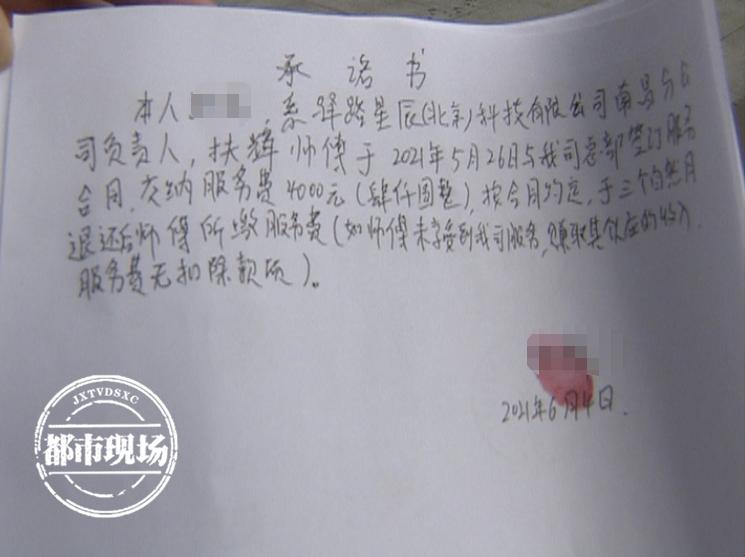 承诺书
本人，系驿路星辰(北京)科技有限公司南昌分公
司负责人，扶辉师傅于2021年5月26日与我司总部签订服务
合同，交纳服务费4000元(肆仟圆整)，按合同约定，于三个自然月
退还给师傅所缴服务费(如师傅未享受到我司服务，赚取其饮应的收入
服务费无扣除款项)。
2021年6月4日.
JXTVDSXC
都市现场